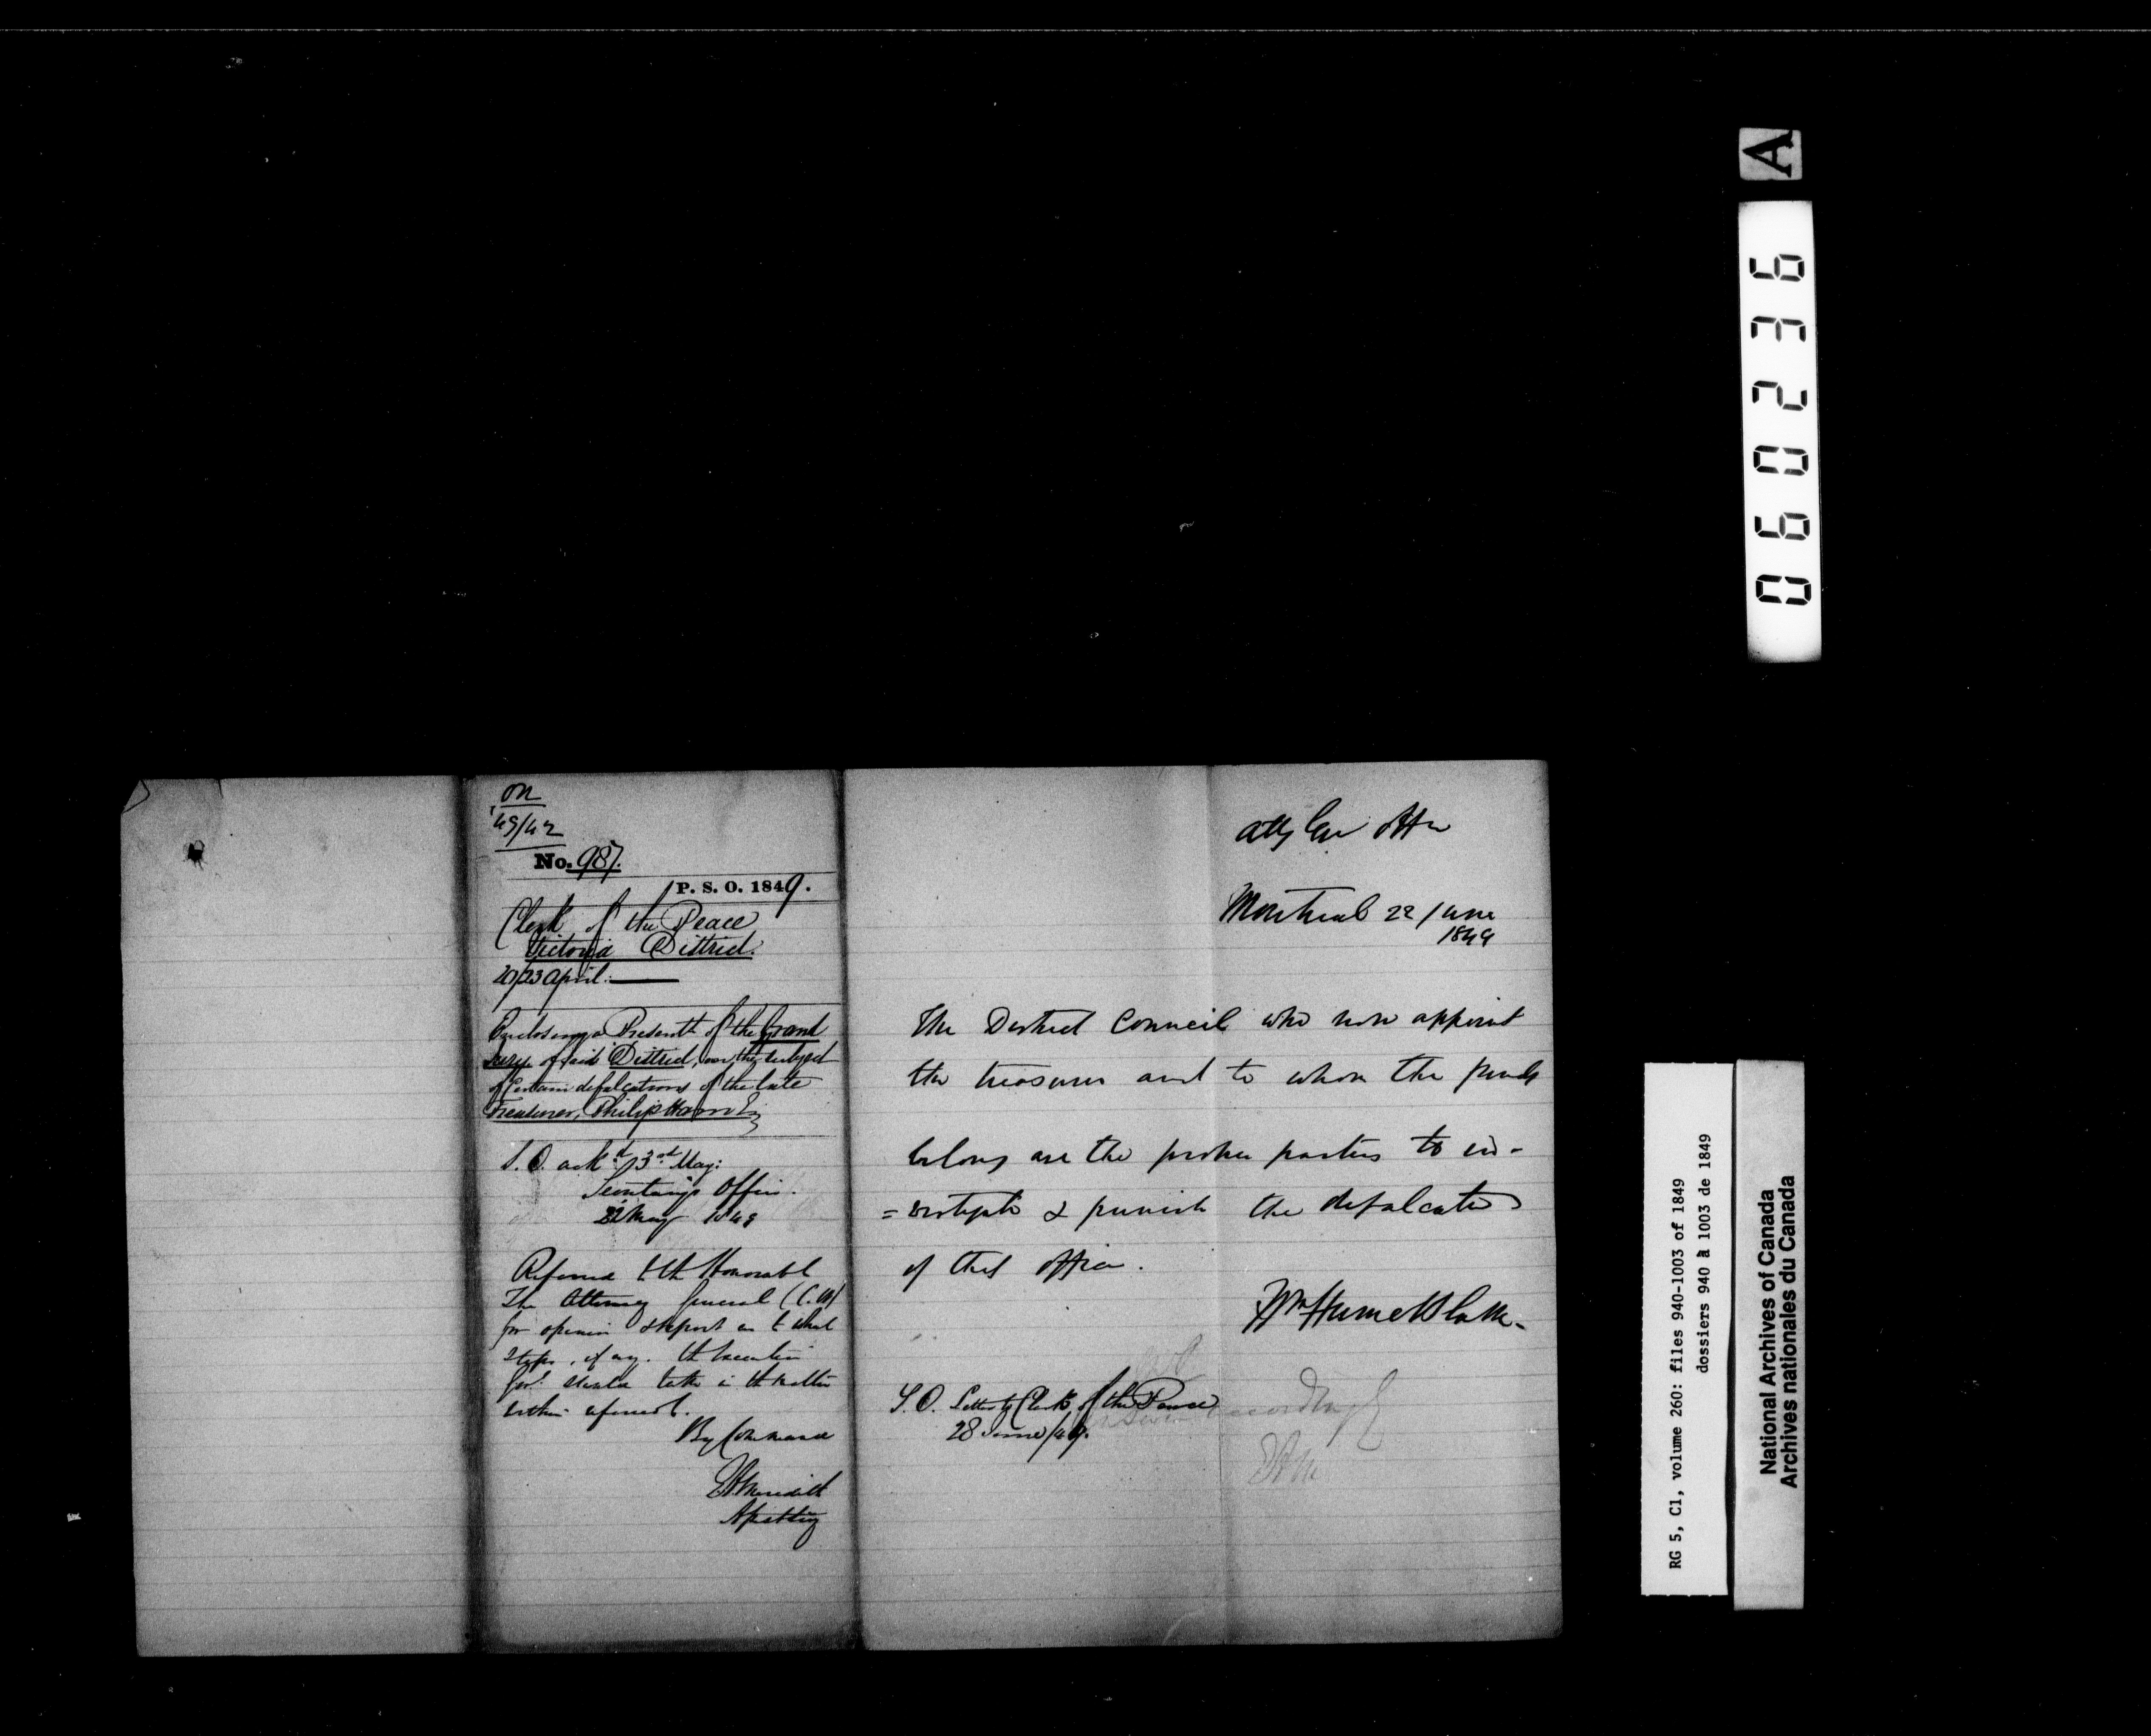 on
49/42
No. 987.
P. S. O. 1849.
Clerk of the Peace
Victoria District.
20/23 April.
Enclosing a Presentt of the Grand
Jury of said District, on the subject
of Certain defalcations of the late
Treasurer, Philip Ham Esq
S. O. ackd 3rd May:
Secretary's Office.
22 May 1849
Referred to the Honorable
The Attorney General (C.W)
for opinion & report as to what
steps, if any. the Executive
Govt should take in the matter
within referred.
By Command
EA Meredith
Asst Secy
Atty Gen Office
Montreal 22 June
1849
The District Council who now appoint
the treasurer and to whom the funds
belong are the proper parties to in-
=vestigate & punish the defalcation
of that officer.
Wm Hume Blake.
S. O. Letter to Clerk of the Peace
28 June/49.
accordingly
EAM
A
060236
RG 5, C1, volume 260: files 940-1003 of 1849
dossiers 940 à 1003 de 1849
National Archives of Canada
Archives nationales du Canada